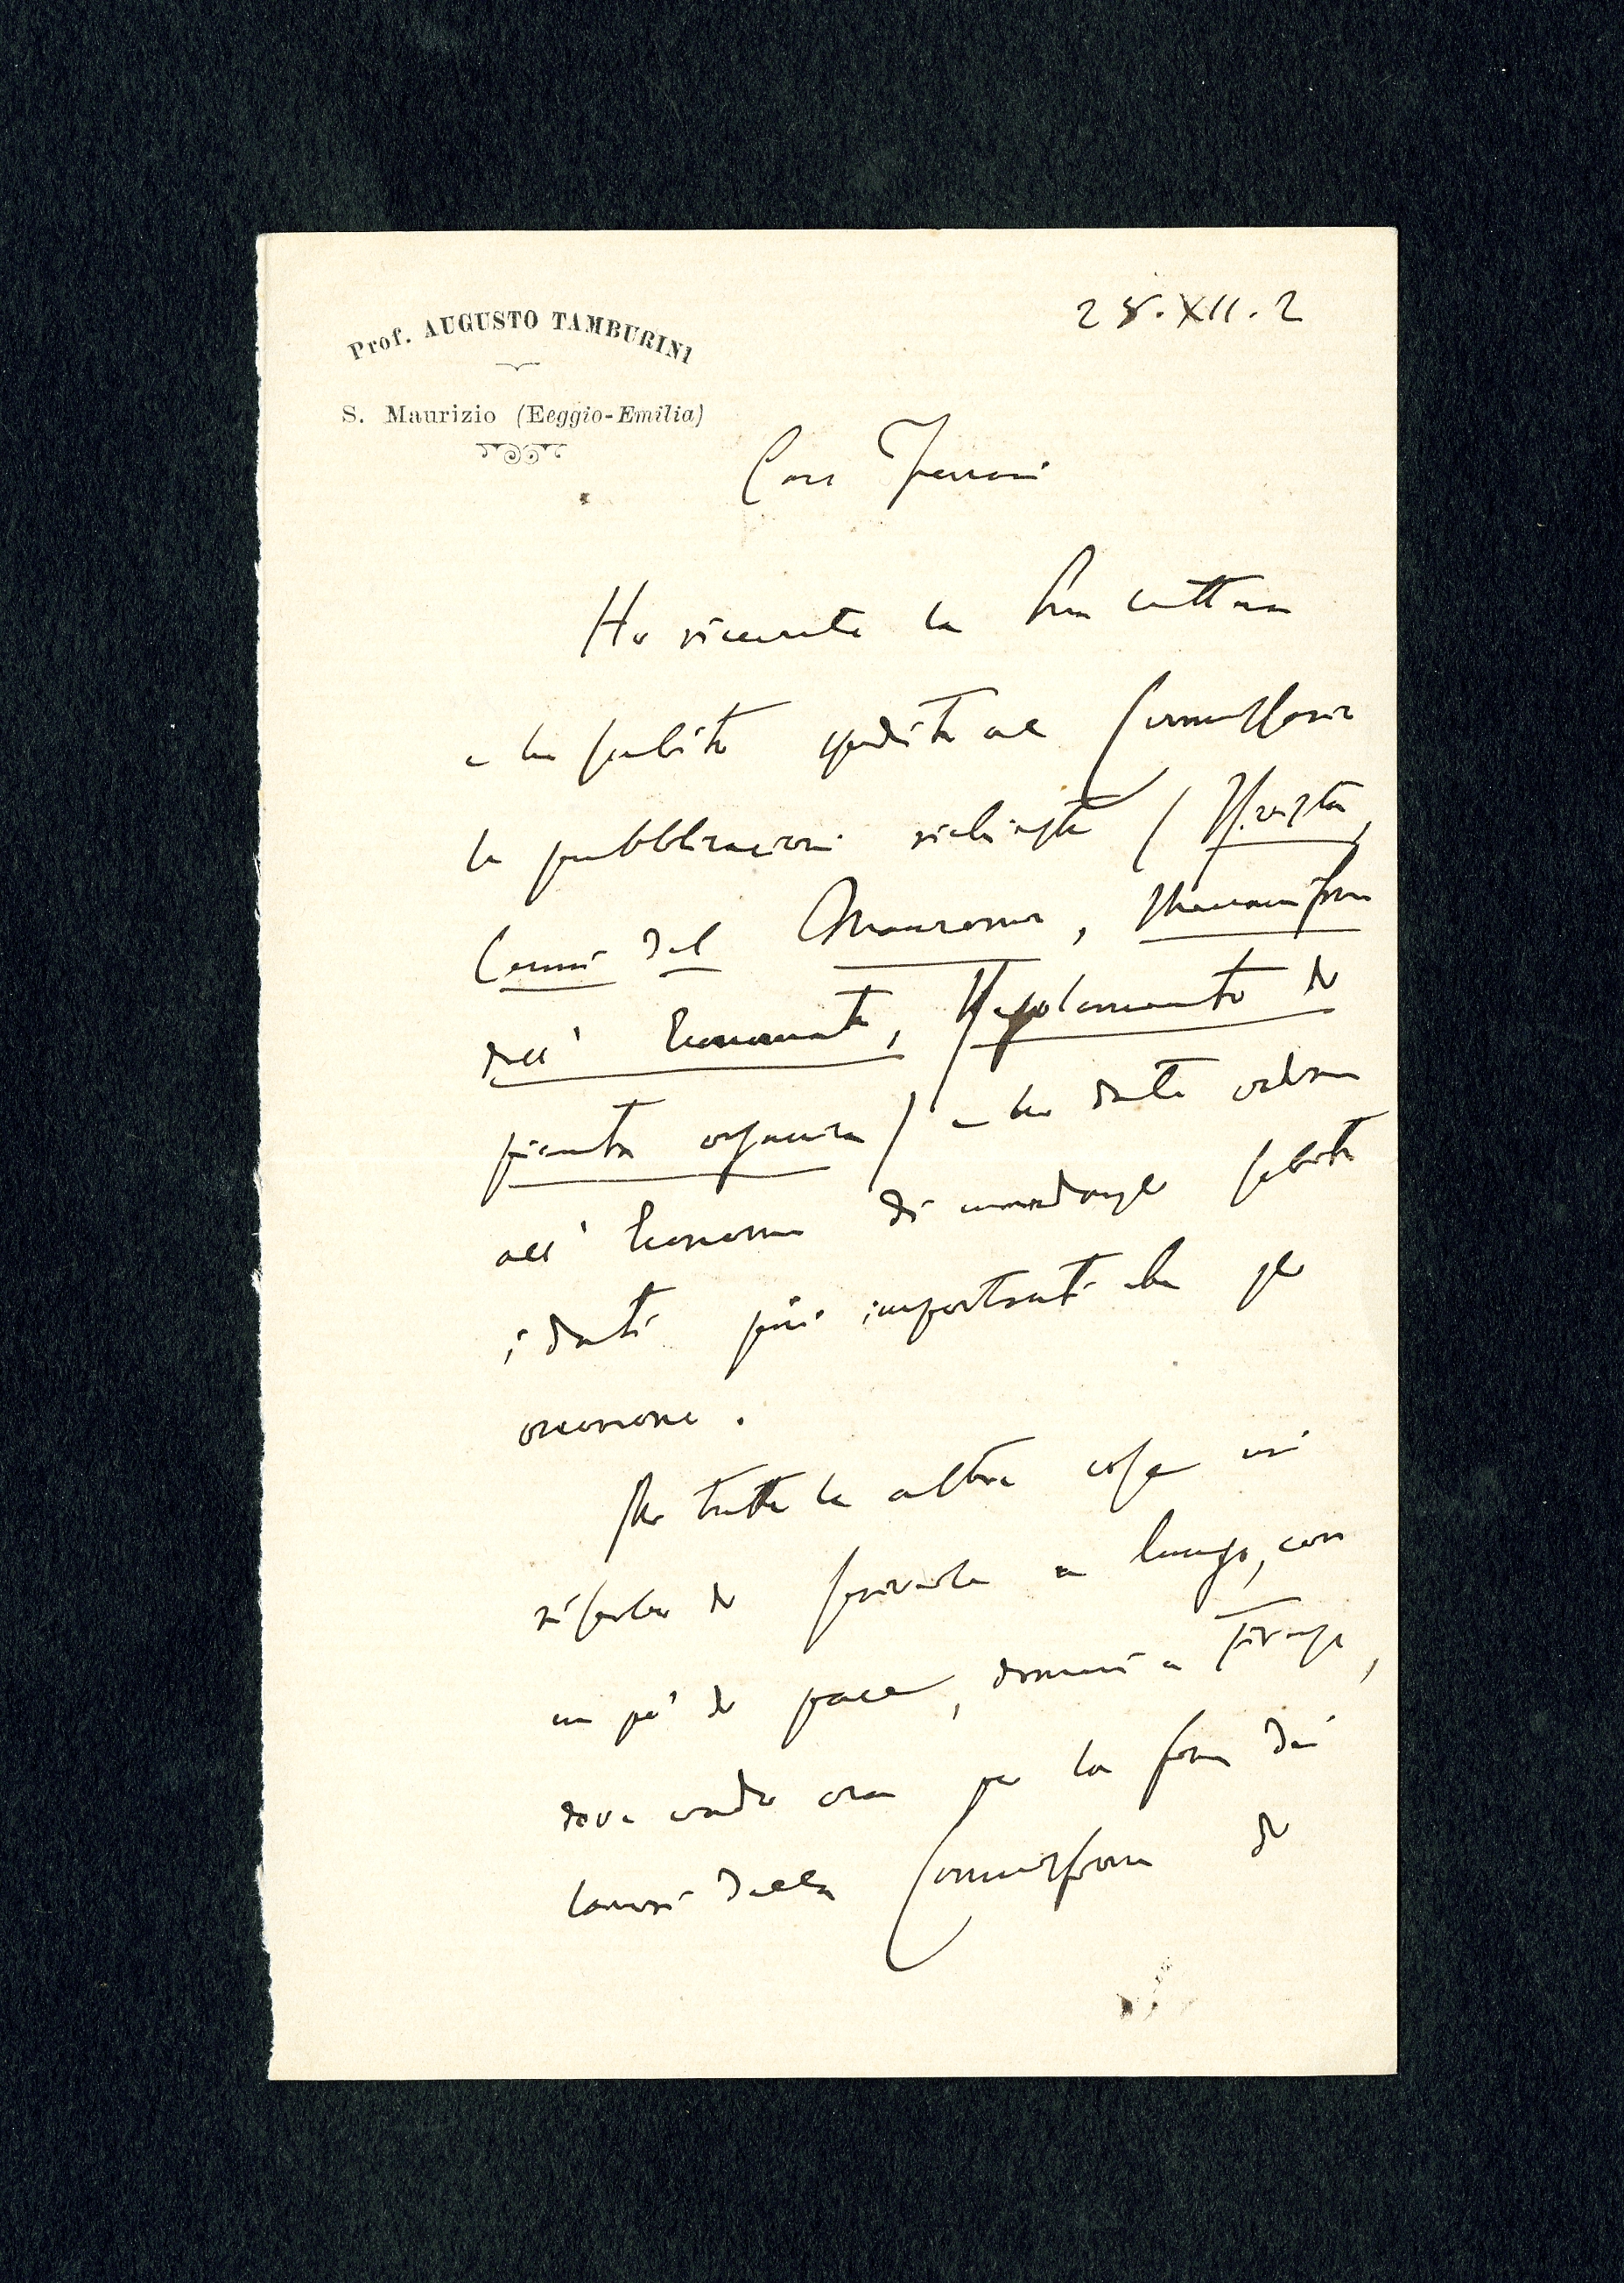 Prof. AUGUSTO TAMBURINI
S. Maurizio (Eeggio-Emilia)
25.XII.2
Caro Ferrari
Ho ricevuto la Sua lettera
e ho subito spedito al Commissario
le pubblicazioni richieste (Rivista,
Cenni del Manicomio,
dell' Economato, Regolamento di
pianta organica) e ho dato ordine
all' Economo di mandargli subito
i dati più importanti che gli
Per tutte le altre cose mi
riserbo di scriverle a lungo, con
un po' di pace, domani a Firenze,
dove vado ora per la fine dei
lavori della Commissione di